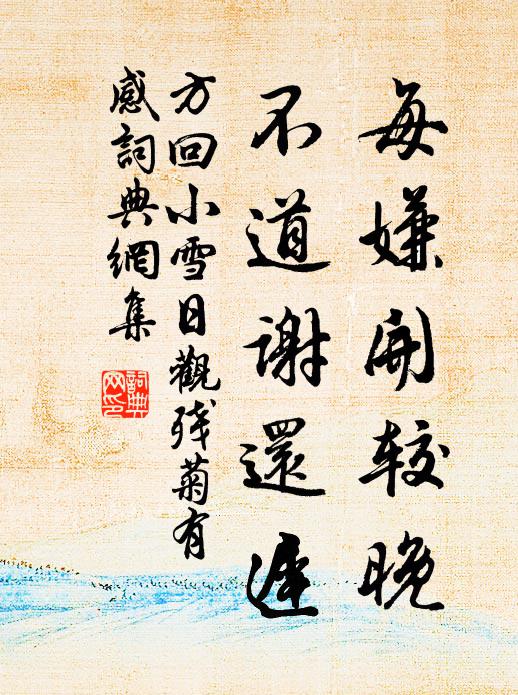 每嫌開较晚
不道謝還遲
方回小雪日觀残菊有
感詞典網集
詞典
网印